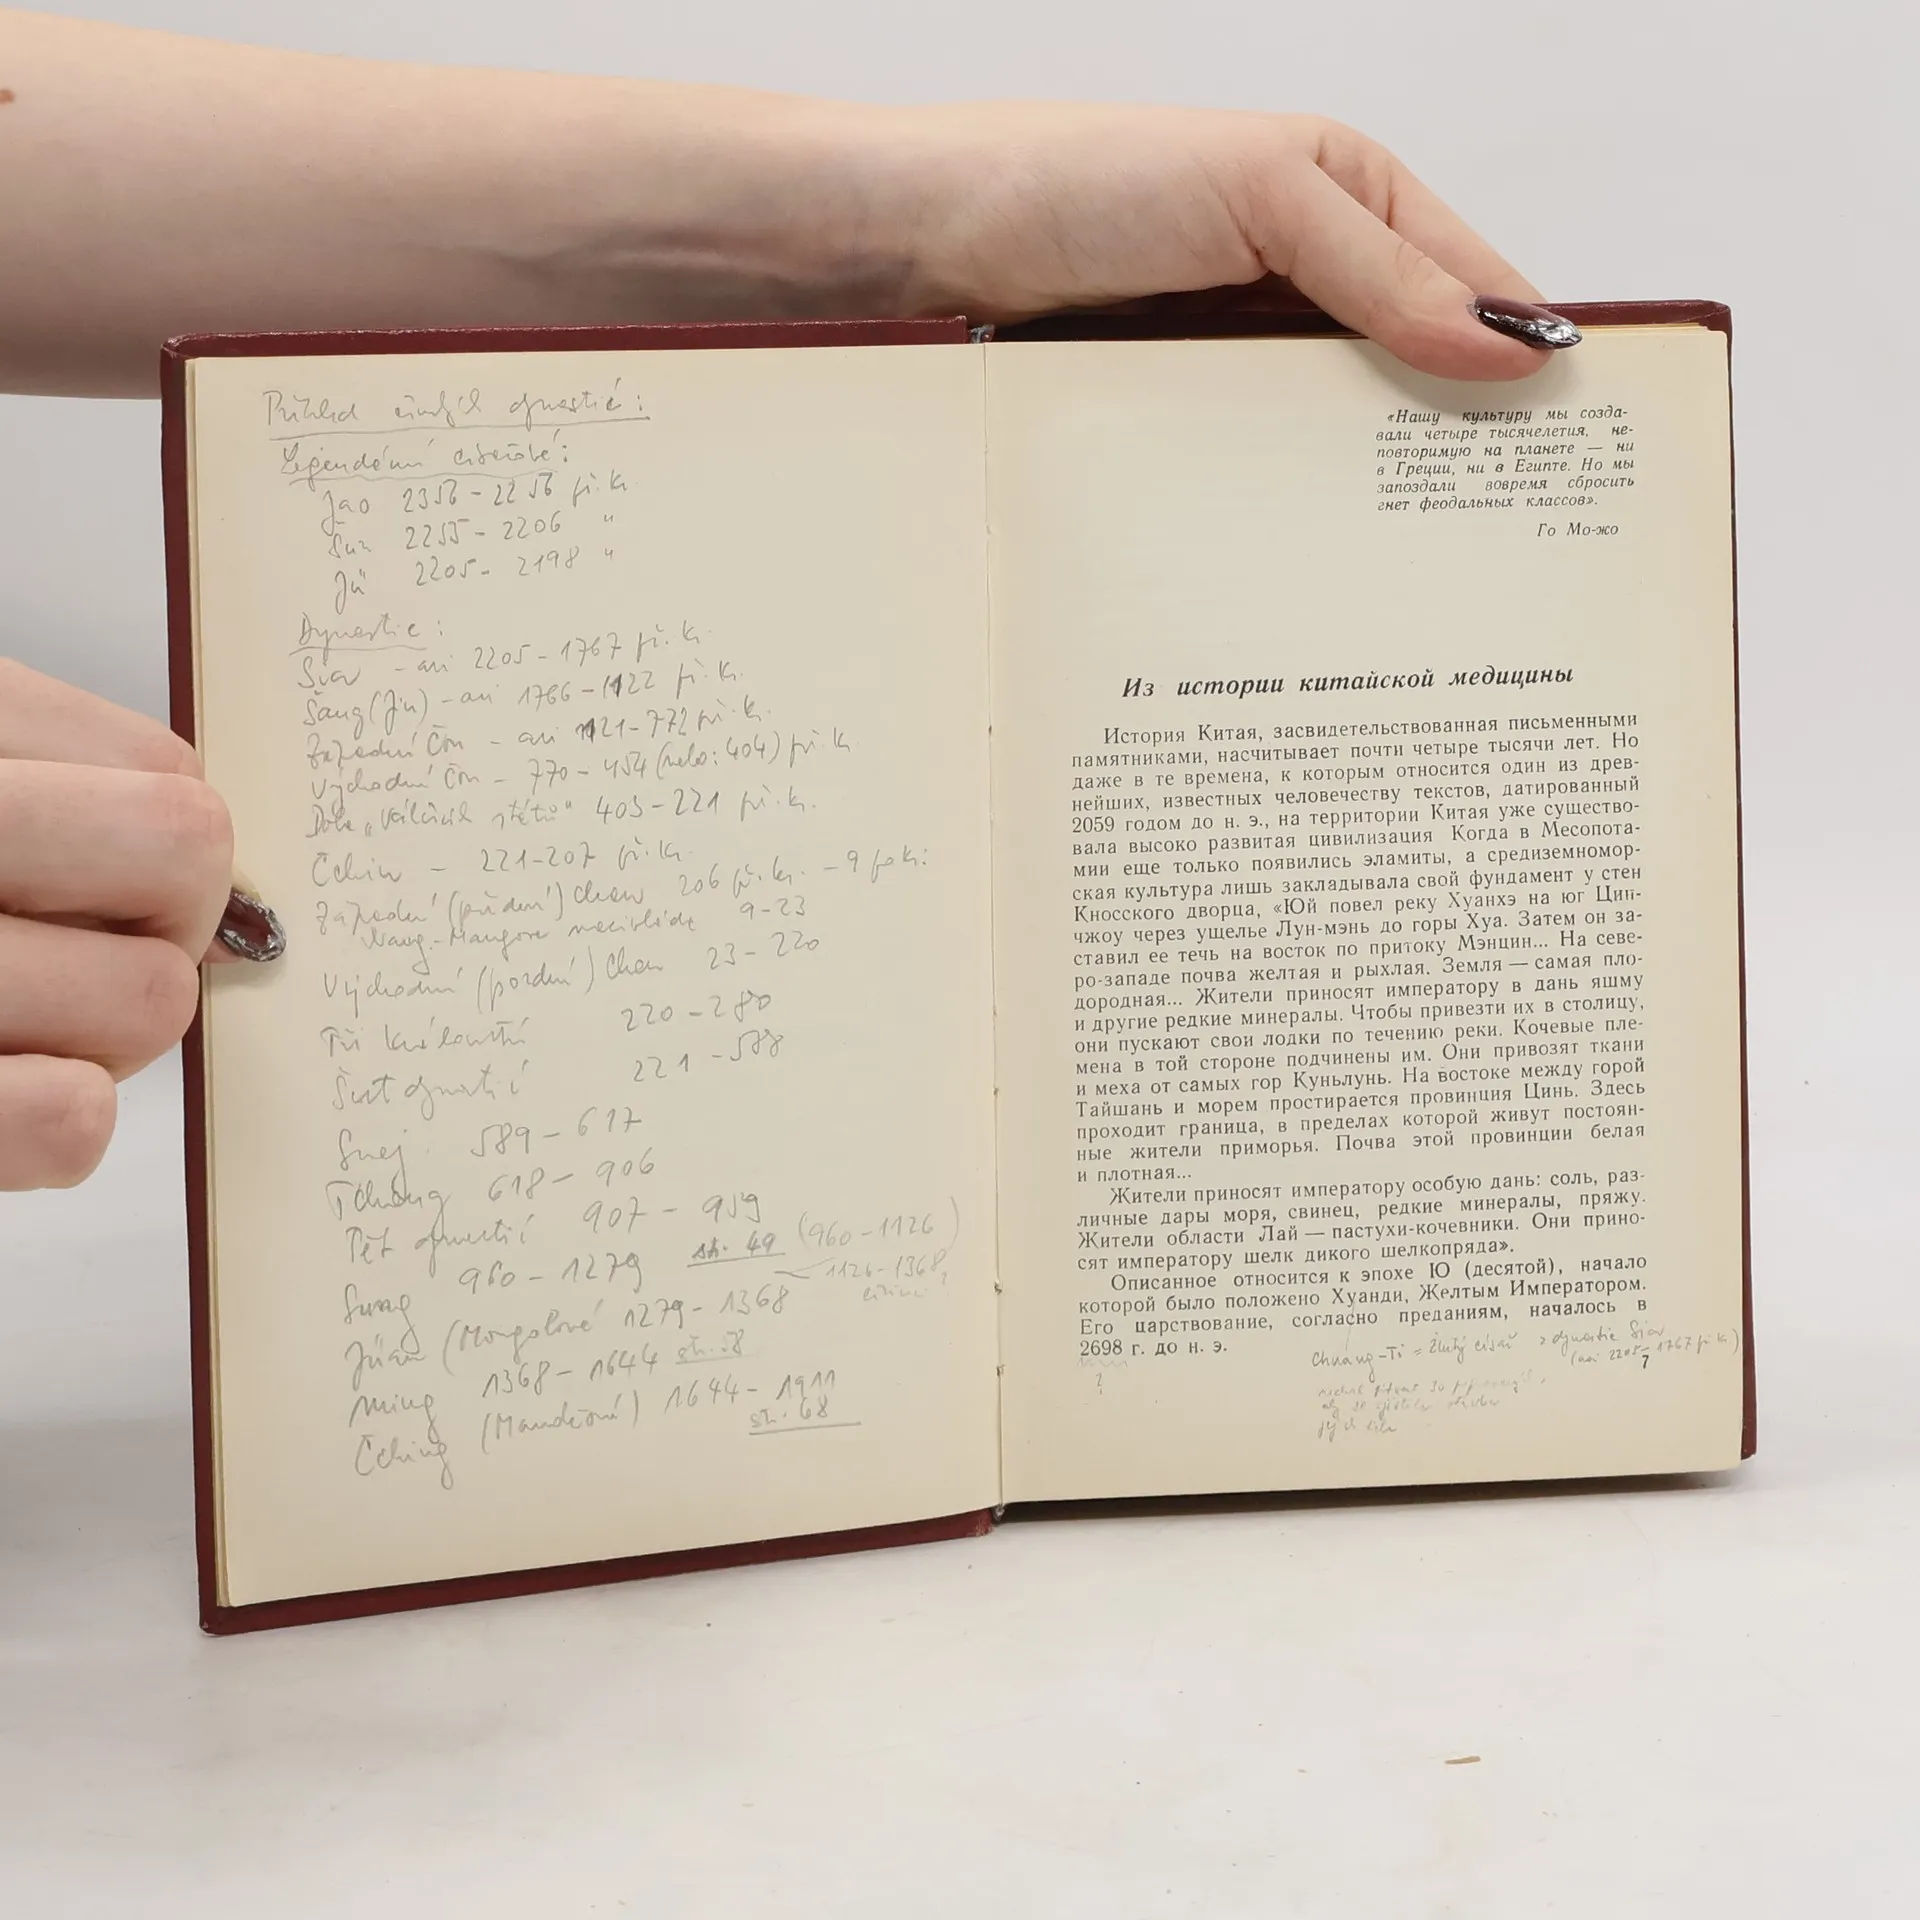 Přehled čínských dynastií:
Legendární císařové:
Jao 2356-2256 př. Kr.
Šun 2255-2206 "
Jü 2205- 2198 "
Dynastie:
Sia - asi 2205-1767 př. Kr.
Šang (Jin) - asi 1766-1122 př. Kr.
Západní Čou - asi 1121-771 př. Kr.
Východní Čou - 770-454 (nebo: 404) př. Kr.
Doba „Válčících států“ 403-221 př. Kr.
Čchin - 221-207 př. Kr.
Západní (přední) Chan 206 př. Kr. - 9 po Kr:
Wang-Mangova 9-23
Východní (pozdní) Chan 23-220
Tři království 220-280
Šest dynastií 221-588
Suej 589-617
Tchang 618-906
Pět dynastií 907-959
Sung 960-1279 str. 49 (960-1126)
1126-1368
Jüan (Mongolové 1279-1368
Ming 1368-1644 str. 58
Čching (Mandžoué) 1644-1911
str. 68
«Нашу культуру мы созда-
вали четыре тысячелетия, не-
повторимую на планете — ни
в Греции, ни в Египте. Но мы
запоздали вовремя сбросить
гнет феодальных классов».
Го Мо-жо
Из истории китайской медицины
История Китая, засвидетельствованная письменными
памятниками, насчитывает почти четыре тысячи лет. Но
даже в те времена, к которым относится один из древ-
нейших, известных человечеству текстов, датированный
2059 годом до н. э., на территории Китая уже существо-
вала высоко развитая цивилизация Когда в Месопота-
мии еще только появились эламиты, а средиземномор-
ская культура лишь закладывала свой фундамент у стен
Кносского дворца, «Юй повел реку Хуанхэ на юг Цин-
чжоу через ущелье Лун-мэнь до горы Хуа. Затем он за-
ставил ее течь на восток по притоку Мэнцин... На севе-
ро-западе почва желтая и рыхлая. Земля — самая пло-
дородная... Жители приносят императору в дань яшму
и другие редкие минералы. Чтобы привезти их в столицу,
они пускают свои лодки по течению реки. Кочевые пле-
мена в той стороне подчинены им. Они привозят ткани
и меха от самых гор Куньлунь. На востоке между горой
Тайшань и морем простирается провинция Цинь. Здесь
проходит граница, в пределах которой живут постоян-
ные жители приморья. Почва этой провинции белая
и плотная...
Жители приносят императору особую дань: соль, раз-
личные дары моря, свинец, редкие минералы, пряжу.
Жители области Лай — пастухи-кочевники. Они прино-
сят императору шелк дикого шелкопряда».
Описанное относится к эпохе Ю (десятой), начало
которой было положено Хуанди, Желтым Императором.
Его царствование, согласно преданиям, началось в
2698 г. до н. э.
?
Chuang-Ti = Žlutý císař z dynastie Sia
(asi 2205-1767 př. Kr.)
?